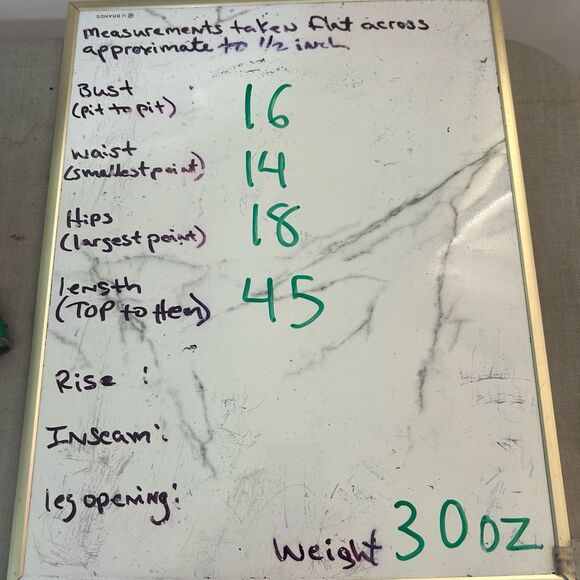 U BRANDS
measurements taken flat across
approximate to 1/2 inch
Bust :
(pit to pit)
16
waist
(smallest point)
14
Hips
(largest point)
18
length
(TOP to Hem)
45
Rise :
Inseam:
leg opening:
Weight 30 oz